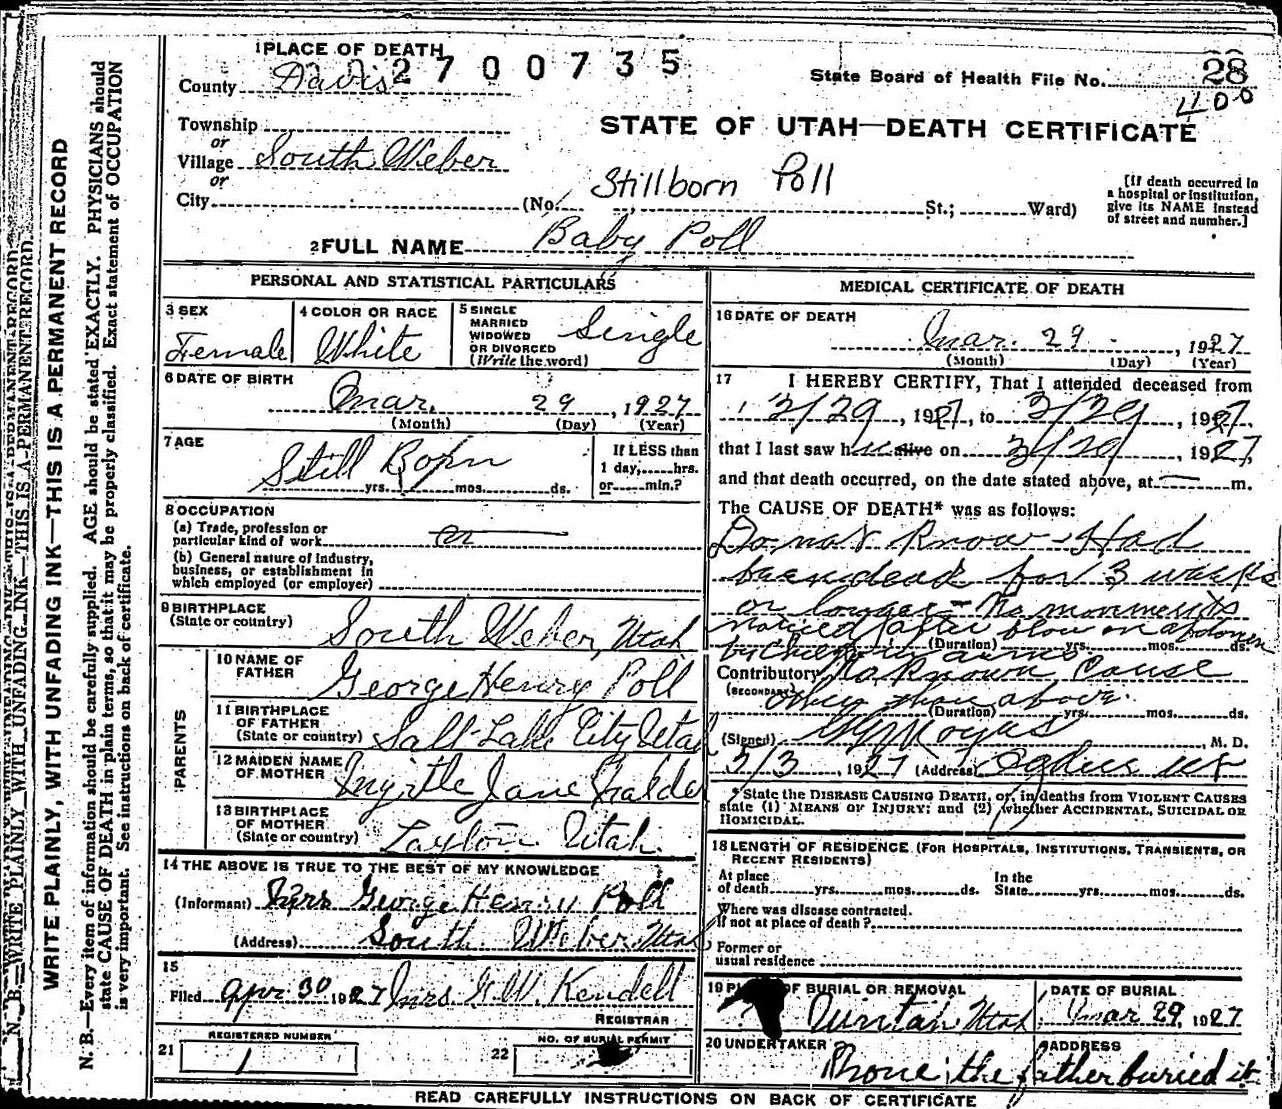 1 PLACE OF DEATH
2700735
County Davis
State Board of Health File No. 28
400
Township
or
Village South Weber
or
City (No. St.; Ward)
STATE OF UTAH—DEATH CERTIFICATE
Stillborn Poll
[If death occurred in a hospital or institution, give its NAME instead of street and number.]
2 FULL NAME Baby Poll
PERSONAL AND STATISTICAL PARTICULARS
3 SEX
Female
4 COLOR OR RACE
White
5 SINGLE
MARRIED
WIDOWED
OR DIVORCED
(Write the word)
Single
6 DATE OF BIRTH
Mar. 29, 1927
(Month) (Day) (Year)
7 AGE
Still Born
yrs. mos. ds.
If LESS than
1 day, hrs.
or min.?
8 OCCUPATION
(a) Trade, profession or
particular kind of work
(b) General nature of industry,
business, or establishment in
which employed (or employer)
9 BIRTHPLACE
(State or country)
South Weber, Utah
PARENTS
10 NAME OF
FATHER
George Henry Poll
11 BIRTHPLACE
OF FATHER
(State or country)
Salt Lake City Utah
12 MAIDEN NAME
OF MOTHER
Myrtle Jane
13 BIRTHPLACE
OF MOTHER
(State or country)
Layton Utah.
14 THE ABOVE IS TRUE TO THE BEST OF MY KNOWLEDGE
(Informant) Mrs George Henry Poll
(Address) South Weber Utah
15
Filed Apr 30 1927 Mrs G.W. Kendell
REGISTRAR
REGISTERED NUMBER
21 1
NO. OF BURIAL PERMIT
22
MEDICAL CERTIFICATE OF DEATH
16 DATE OF DEATH
Mar. 29, 1927
(Month) (Day) (Year)
17 I HEREBY CERTIFY, That I attended deceased from
3/29, 1927, to 3/29, 1927
that I last saw h alive on 3/29, 1927,
and that death occurred, on the date stated above, at — m.
The CAUSE OF DEATH* was as follows:
Do not know - Had
been dead for 3 weeks
or longer - No movements
noticed after blow on abdomen
(Duration) yrs. mos. ds.
by child in arms
Contributory No known cause
(SECONDARY)
other than above.
(Duration) yrs. mos. ds.
(Signed) M. D.
1927 (Address) Ogden Ut
* State the DISEASE CAUSING DEATH, or, in deaths from VIOLENT CAUSES
state (1) MEANS OF INJURY; and (2) whether ACCIDENTAL, SUICIDAL OR
HOMICIDAL.
18 LENGTH OF RESIDENCE (FOR HOSPITALS, INSTITUTIONS, TRANSIENTS, OR
RECENT RESIDENTS)
At place
of death yrs. mos. ds.
In the
State yrs. mos. ds.
Where was disease contracted.
If not at place of death?
Former or
usual residence
19 OF BURIAL OR REMOVAL
Uintah Utah
DATE OF BURIAL
Mar 29, 1927
20 UNDERTAKER
ADDRESS
None, the father buried it.
READ CAREFULLY INSTRUCTIONS ON BACK OF CERTIFICATE
WRITE PLAINLY, WITH UNFADING INK—THIS IS A PERMANENT RECORD
N. B.—Every item of information should be carefully supplied. AGE should be stated EXACTLY. PHYSICIANS should
state CAUSE OF DEATH in plain terms, so that it may be properly classified. Exact statement of OCCUPATION
is very important. See instructions on back of certificate.
N. B.—WRITE PLAINLY WITH UNFADING INK—THIS IS A PERMANENT RECORD.